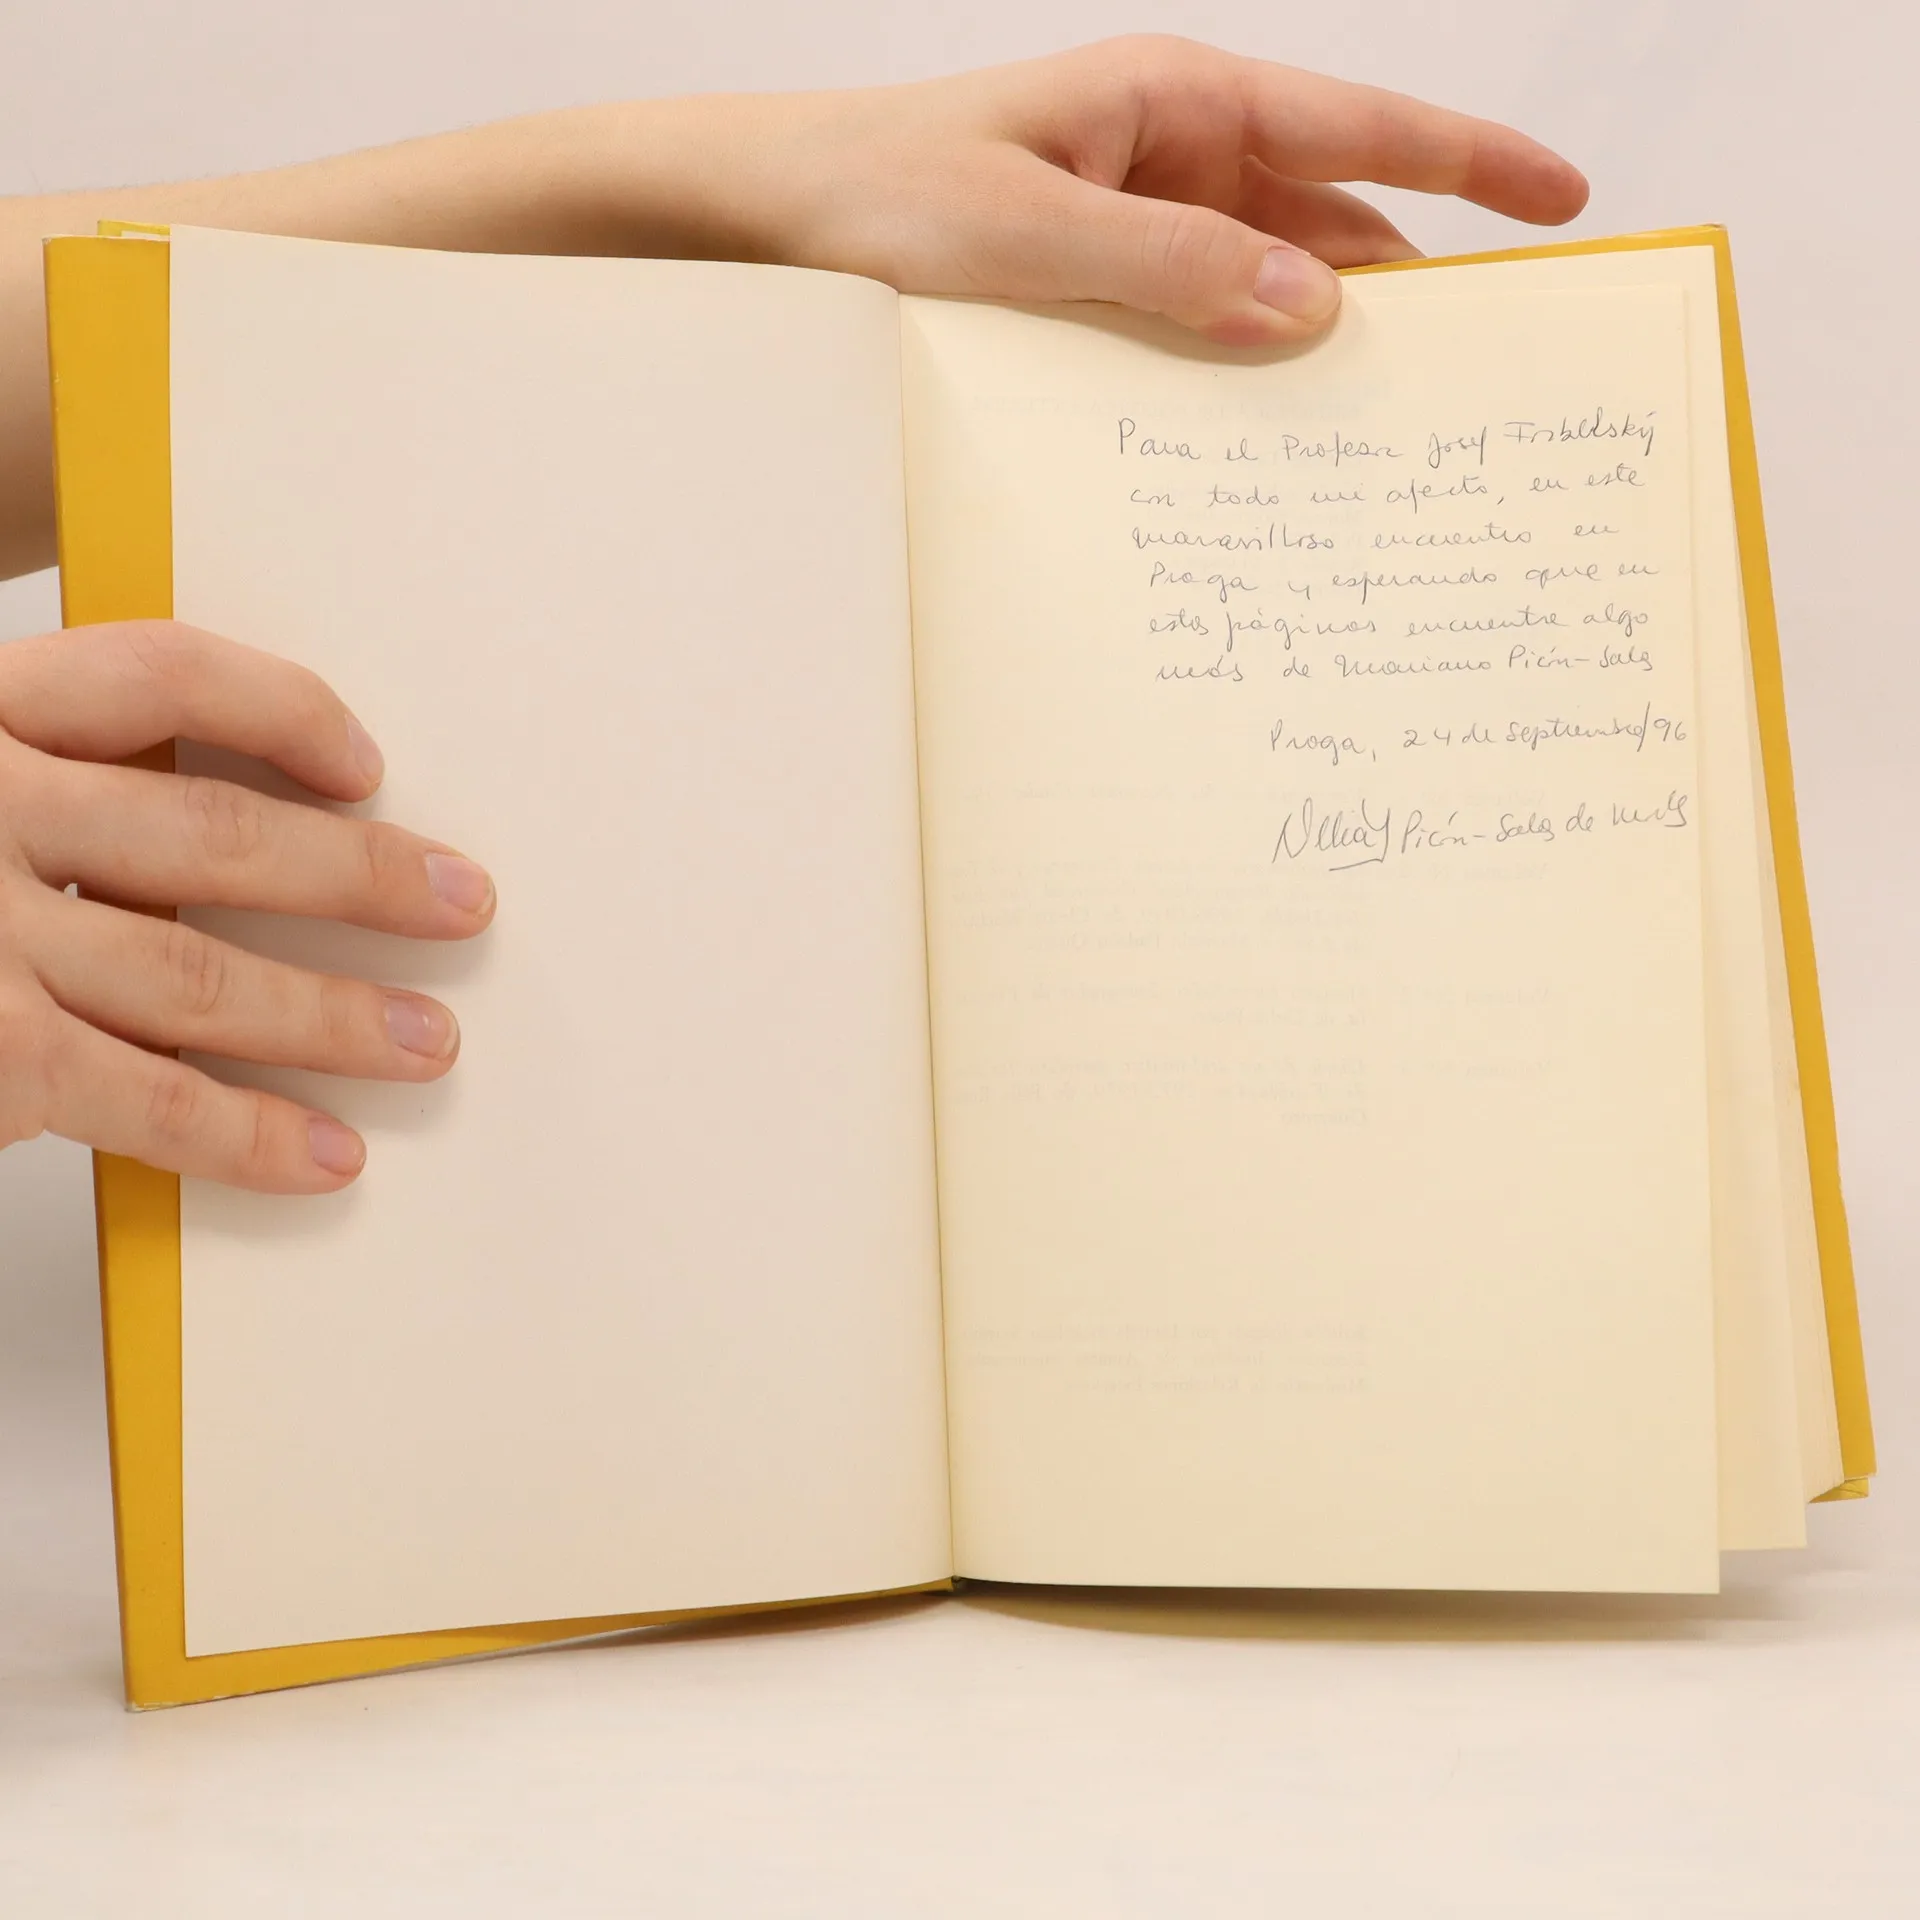 Para el Profesor Josef
con todo mi afecto, en este
maravilloso encuentro en
Praga y esperando que en
estas páginas encuentre algo
más de Mariano Picón-Salas
Praga, 24 de Septiembre/96
Picón-Salas de